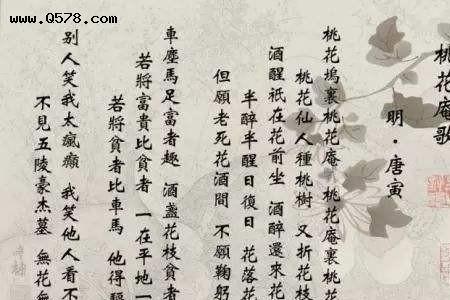 www.Q578.com
桃花庵歌
明·唐寅
桃花塢裏桃花庵 桃花庵裏桃花
桃花仙人種桃樹 又折花枝
酒醒祇在花前坐 酒醉還來花
半醉半醒日復日 花落花
但願老死花酒間 不願鞠躬
車塵馬足富者趣 酒盞花枝貧者
若將富貴比貧者 一在平地一
若將貧者比車馬 他得驅
別人笑我太瘋癲 我笑他人看不
不見五陵豪杰墓 無花無